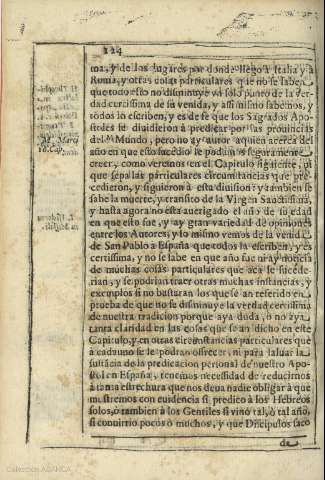 224
ma, y de los lugares por donde llegò à Italia y à
Roma, y otras cosas particulares que no se saben
que todo esso no disminuye vn solo punto de la ver-
dad certissima de su venida, y assi mismo sabemos, y
todos lo escriben, y es de fe que los Sagrados Apo-
stoles se diuidieron à predicar por las prouincias
del Mundo, pero no ay autor a quien acerca del
año en que esto sucediò se podam os seguramente
creer, como veremos en el Capitulo siguiente, ni
que sepa las particulares circunstancias que pre-
cedieron, y siguieron à esta diuision: y tambien se
sabe la muerte, y transito de la Virgen Santissima,
y hasta agora no està auerigado el año de su edad
en que esto fue, y ay gran variedad de opiniones
entre los Autores, y lo mismo vemos de la venida
de San Pablo a España que todos la escriben, y es
certissima, y no se sabe en que año fue ni ay noticia
de muchas cosas particulares que acà le sucede-
rian, y se podrian traer otras muchas instancias, y
exemplos si no bastaran los que se an referido en
prueba de que no se disminuye la verdad certissima
de nuestra tradicion porque aya duda, ò no aya
tanta claridad en las cosas que se an dicho en este
Capitulo, y en otras circunstancias particulares que
à cada vno se le podran ofrecer, ni para saluar la
sustãcia de la predicacion personal de nuestro Apo-
stol en España, tenemos necesidad de reducirnos
à tanta estrechura que nos deua nadie obligar à que
mostremos con euidencia si predicò à los Hebreos
solos, ò tambien à los Gentiles si vino tal, ò tal año,
si conuirtio pocos ò muchos, y que Discipulos saco
de
Colección ABANCA